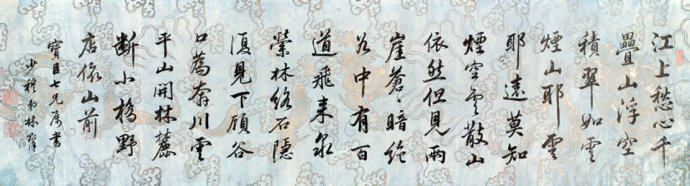 江上愁心千
疊山浮空
積翠如雲
煙山耶雲
耶遠莫知
煙空雲散山
依然但見兩
崖蒼〻暗絕
谷中有百
道飛來泉
縈林絡石隱
復見下谷
口為奔川雲
平山開林麓
斷小橋野
店依山前
寶臣七兄屬書
少穆弟林則徐